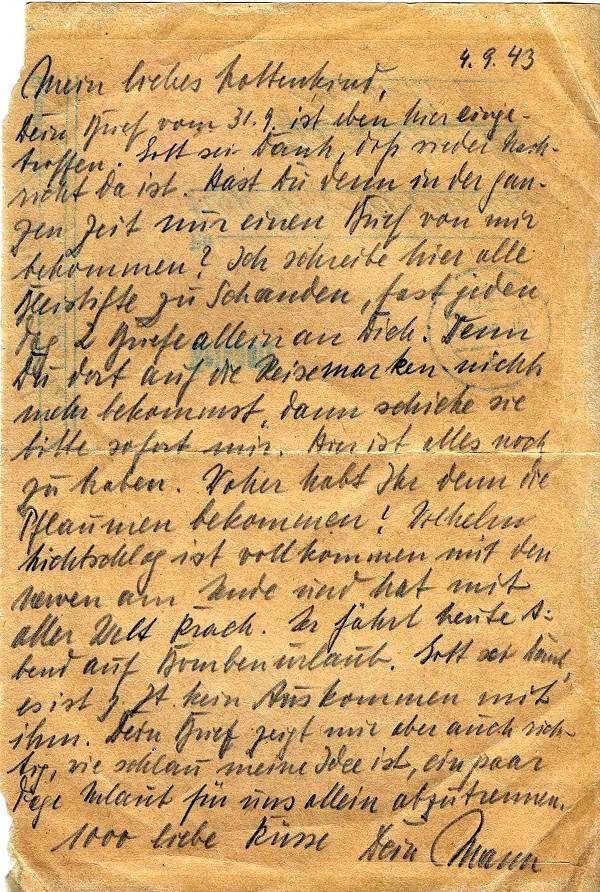 4.9.43
Mein liebes Lottenkind,
Dein Brief vom 31.9. ist eben hier einge-
troffen. Gott sei Dank, daß wieder Nach-
richt da ist. Hast Du denn in der gan-
zen Zeit nur einen Brief von mir
bekommen? Ich schreibe hier alle
Bleistifte zu Schanden, fast jeden
Tag 2 Briefe allein an Dich. Wenn
Du dort auf die Reisemarken nichts
mehr bekommst, dann schicke sie
bitte sofort mir. Hier ist alles noch
zu haben. Woher habt Ihr denn die
Pflaumen bekommen! Wilhelm
ist vollkommen mit den
Nerven am Ende und hat mit
aller Welt Krach. Er fährt heute A-
bend auf Bombenurlaub. Gott sei Dank,
es ist z. Zt. kein Auskommen mit
ihm. Dein Brief zeigt mir aber auch rich-
tig, wie schlau meine Idee ist, ein paar
Tage Urlaub für uns allein abzutrennen.
1000 liebe Küsse Dein Mann